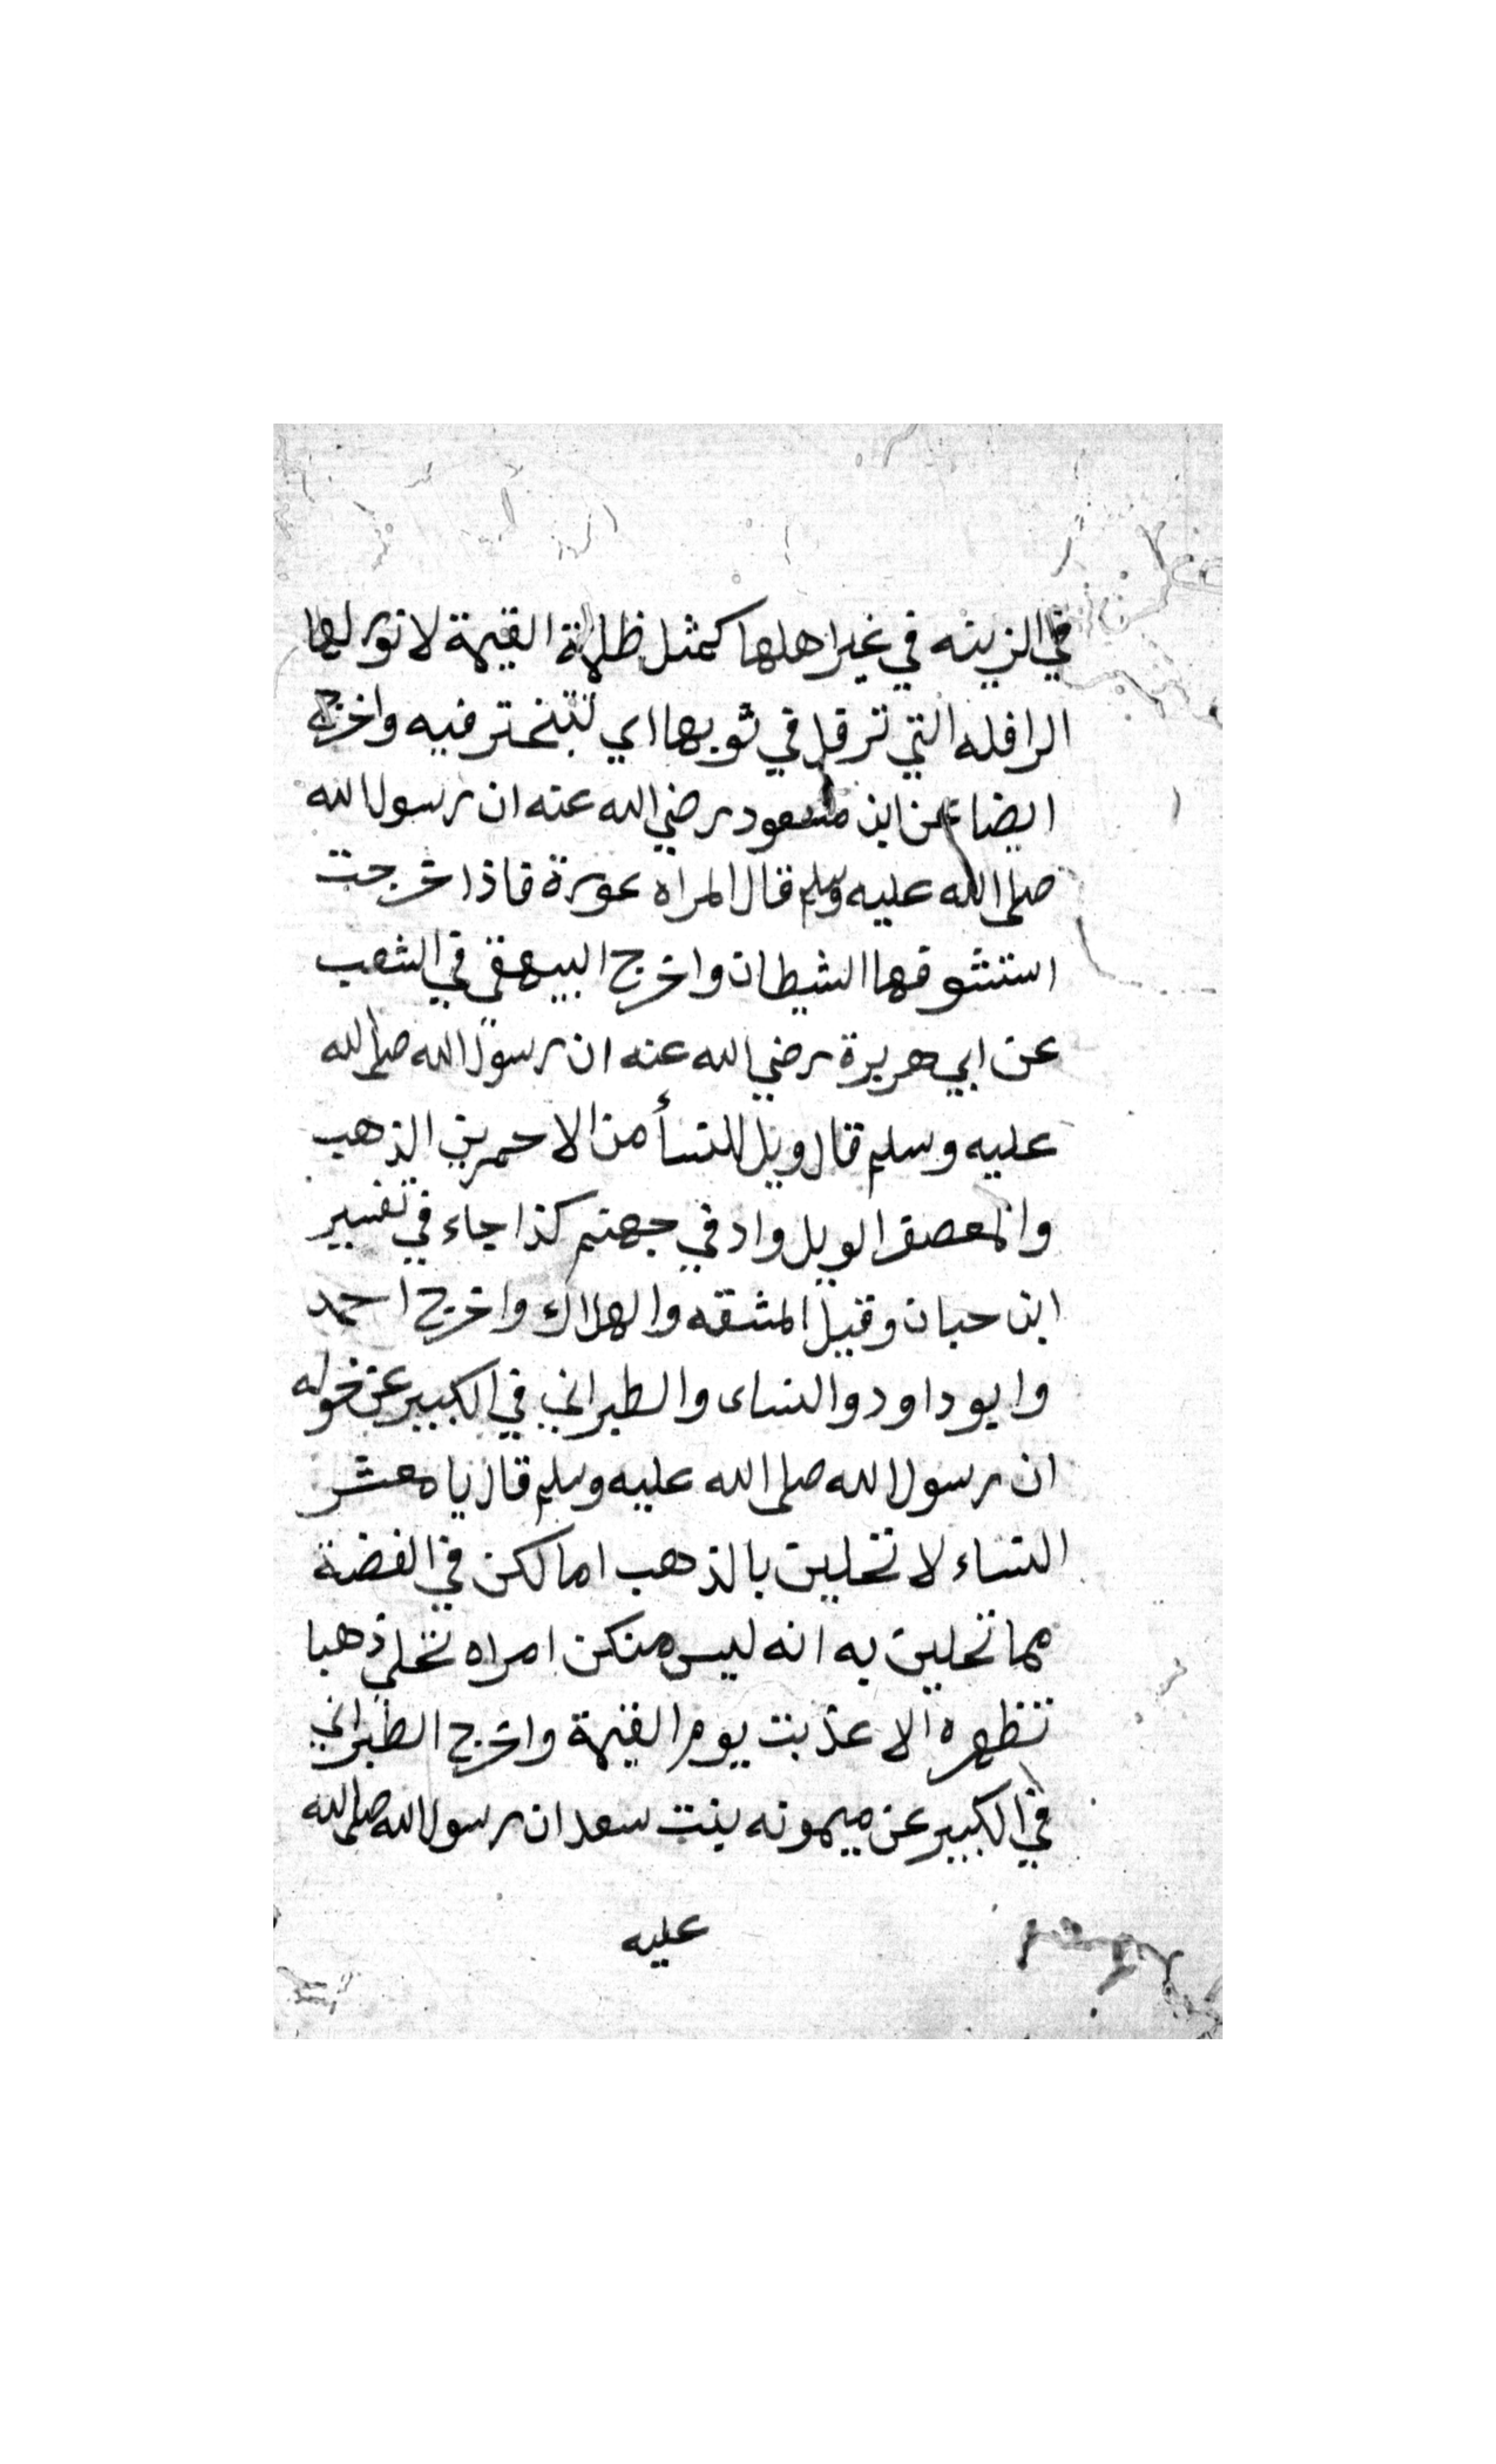 في الزينه في غير اهلها كمثل ظلمة القيمة لا نور لها
الرافله التي ترفل في ثوبها اي تتبختر فيه واخرج
ايضا عن ابن مسعود رضي الله عنه ان رسول الله
صلى الله عليه وسلم قال المراه عورة فاذا خرجت
استشوفها الشيطان واخرج البيهقي في الشعب
عن ابي هريرة رضي الله عنه ان رسول الله صلى الله
عليه وسلم قال ويل للنسأ من الاحمرين الذهب
والمعصفر الويل واد في جهنم كذا جاء في تفسير
ابن حبان وقيل المشقه والهلاك واخرج احمد
وابو داود والنساى والطبراني في الكبير عن خوله
ان رسول الله صلى الله عليه وسلم قال يا معشر
النساء لا تحلين بالذهب اما لكن في الفضة
مما تحلين به انه ليس منكن امراه تحلي ذهبا
تظهره الا عذبت يوم القيمة واخرج الطبراني
في الكبير عن ميمونه بنت سعد ان رسول الله صلى الله
عليه